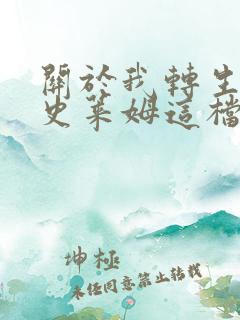 關於我轉生
史萊姆這檔
坤極
未經同意禁止轉載